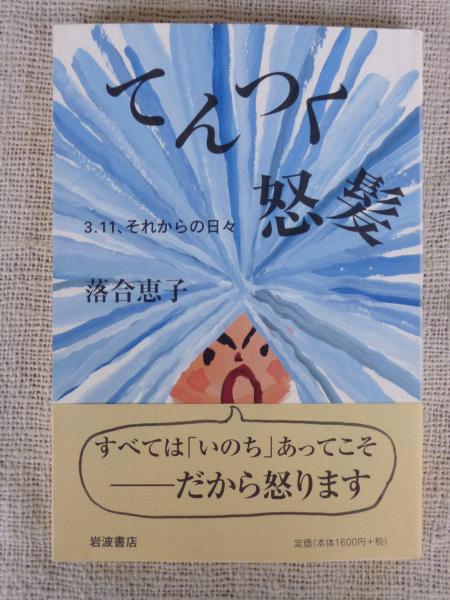 てんつく
怒髪
3.11、それからの日々
落合恵子
すべては「いのち」あってこそ
――だから怒ります
岩波書店
定価(本体1600円+税)